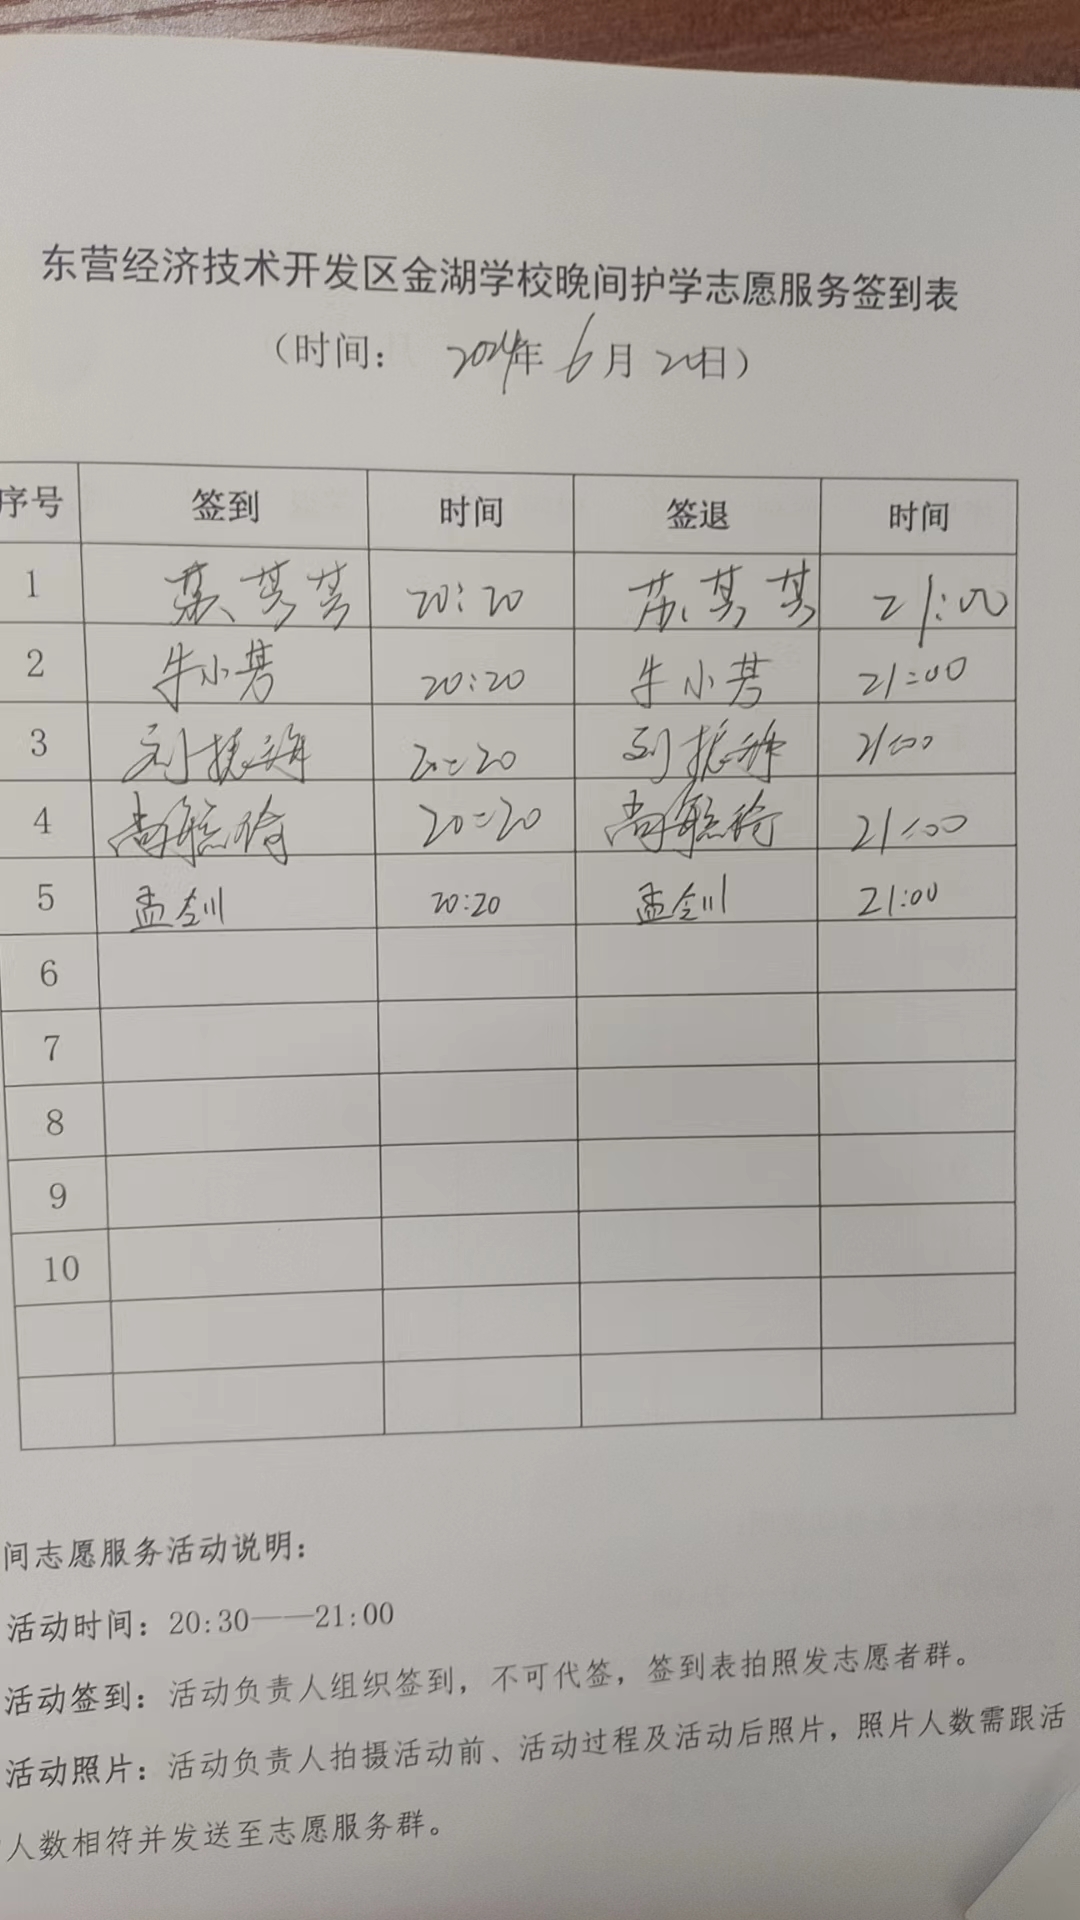 东营经济技术开发区金湖学校晚间护学志愿服务签到表
（时间： 2024年 6月 20日）
序号 签到 时间 签退 时间
1 20:20 21:00
2 牛小芳 20:20 牛小芳 21:00
3 刘振 20:20 刘振 21:00
4 尚毓琦 20:20 尚毓琦 21:00
5 孟剑 20:20 孟剑 21:00
6
7
8
9
10
间志愿服务活动说明：
活动时间：20:30——21:00
活动签到：活动负责人组织签到，不可代签，签到表拍照发志愿者群。
活动照片：活动负责人拍摄活动前、活动过程及活动后照片，照片人数需跟活
人数相符并发送至志愿服务群。